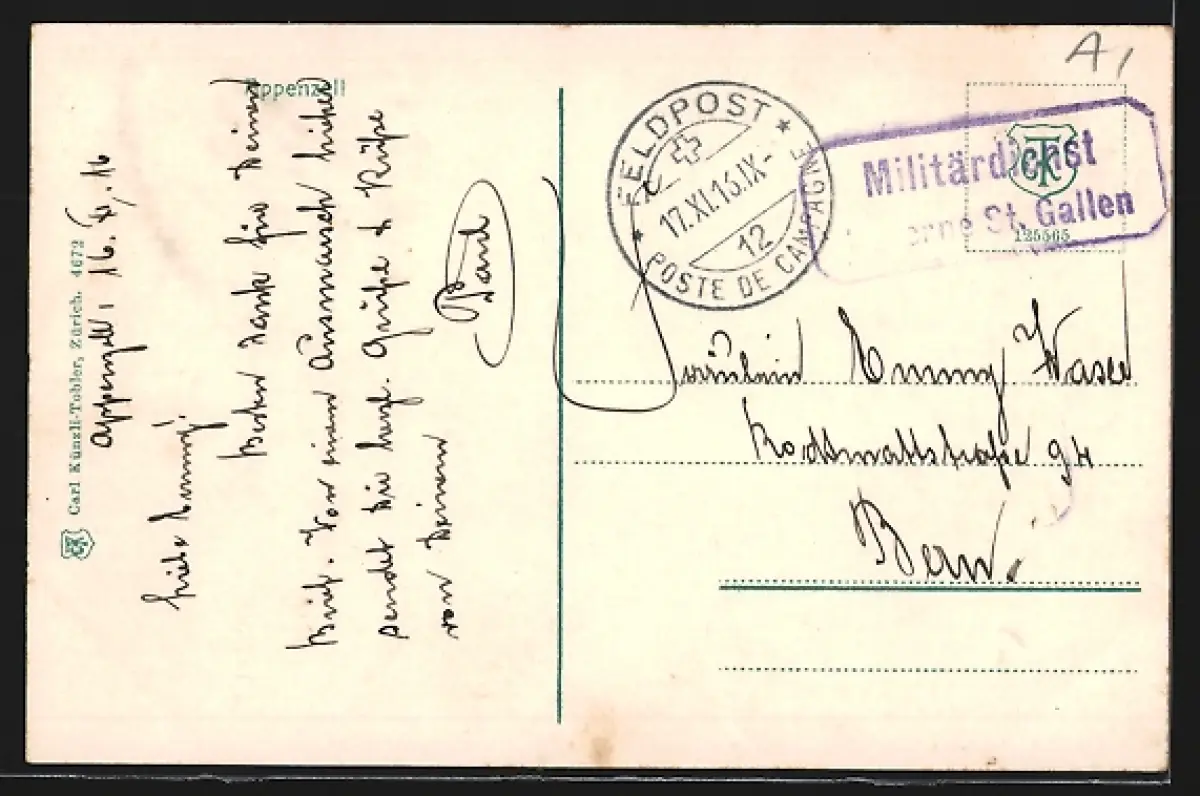 A1
Appenzell
Carl Künzli-Tobler, Zürich. 4672
Appenzell, 16. XI. 16
Liebe Emmy!
Besten Dank für Deinen
Brief. Von einem Ausmarsch hieher
sendet Dir herzl. Grüsse & Küsse
von Deinem
Paul
FELDPOST
17.XI.16.IX-
12
POSTE DE CAMPAGNE
Militärdienst
St. Gallen
CKT
125565
Fräulein Emmy
Bern.